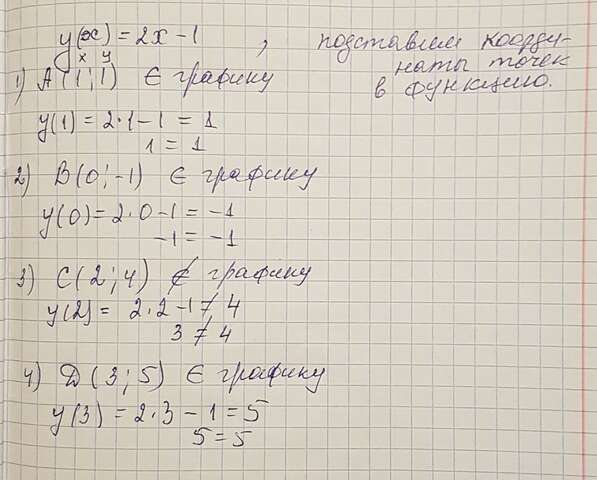 y(x) = 2x - 1 , подставляем коорди-
наты точек
в функцию.
x y
1) A (1; 1) ∈ графику
y(1) = 2·1 - 1 = 1
1 = 1
2) B (0; -1) ∈ графику
y(0) = 2·0 - 1 = -1
-1 = -1
3) C (2; 4) ∉ графику
y(2) = 2·2 - 1 ≠ 4
3 ≠ 4
4) D (3; 5) ∈ графику
y(3) = 2·3 - 1 = 5
5 = 5